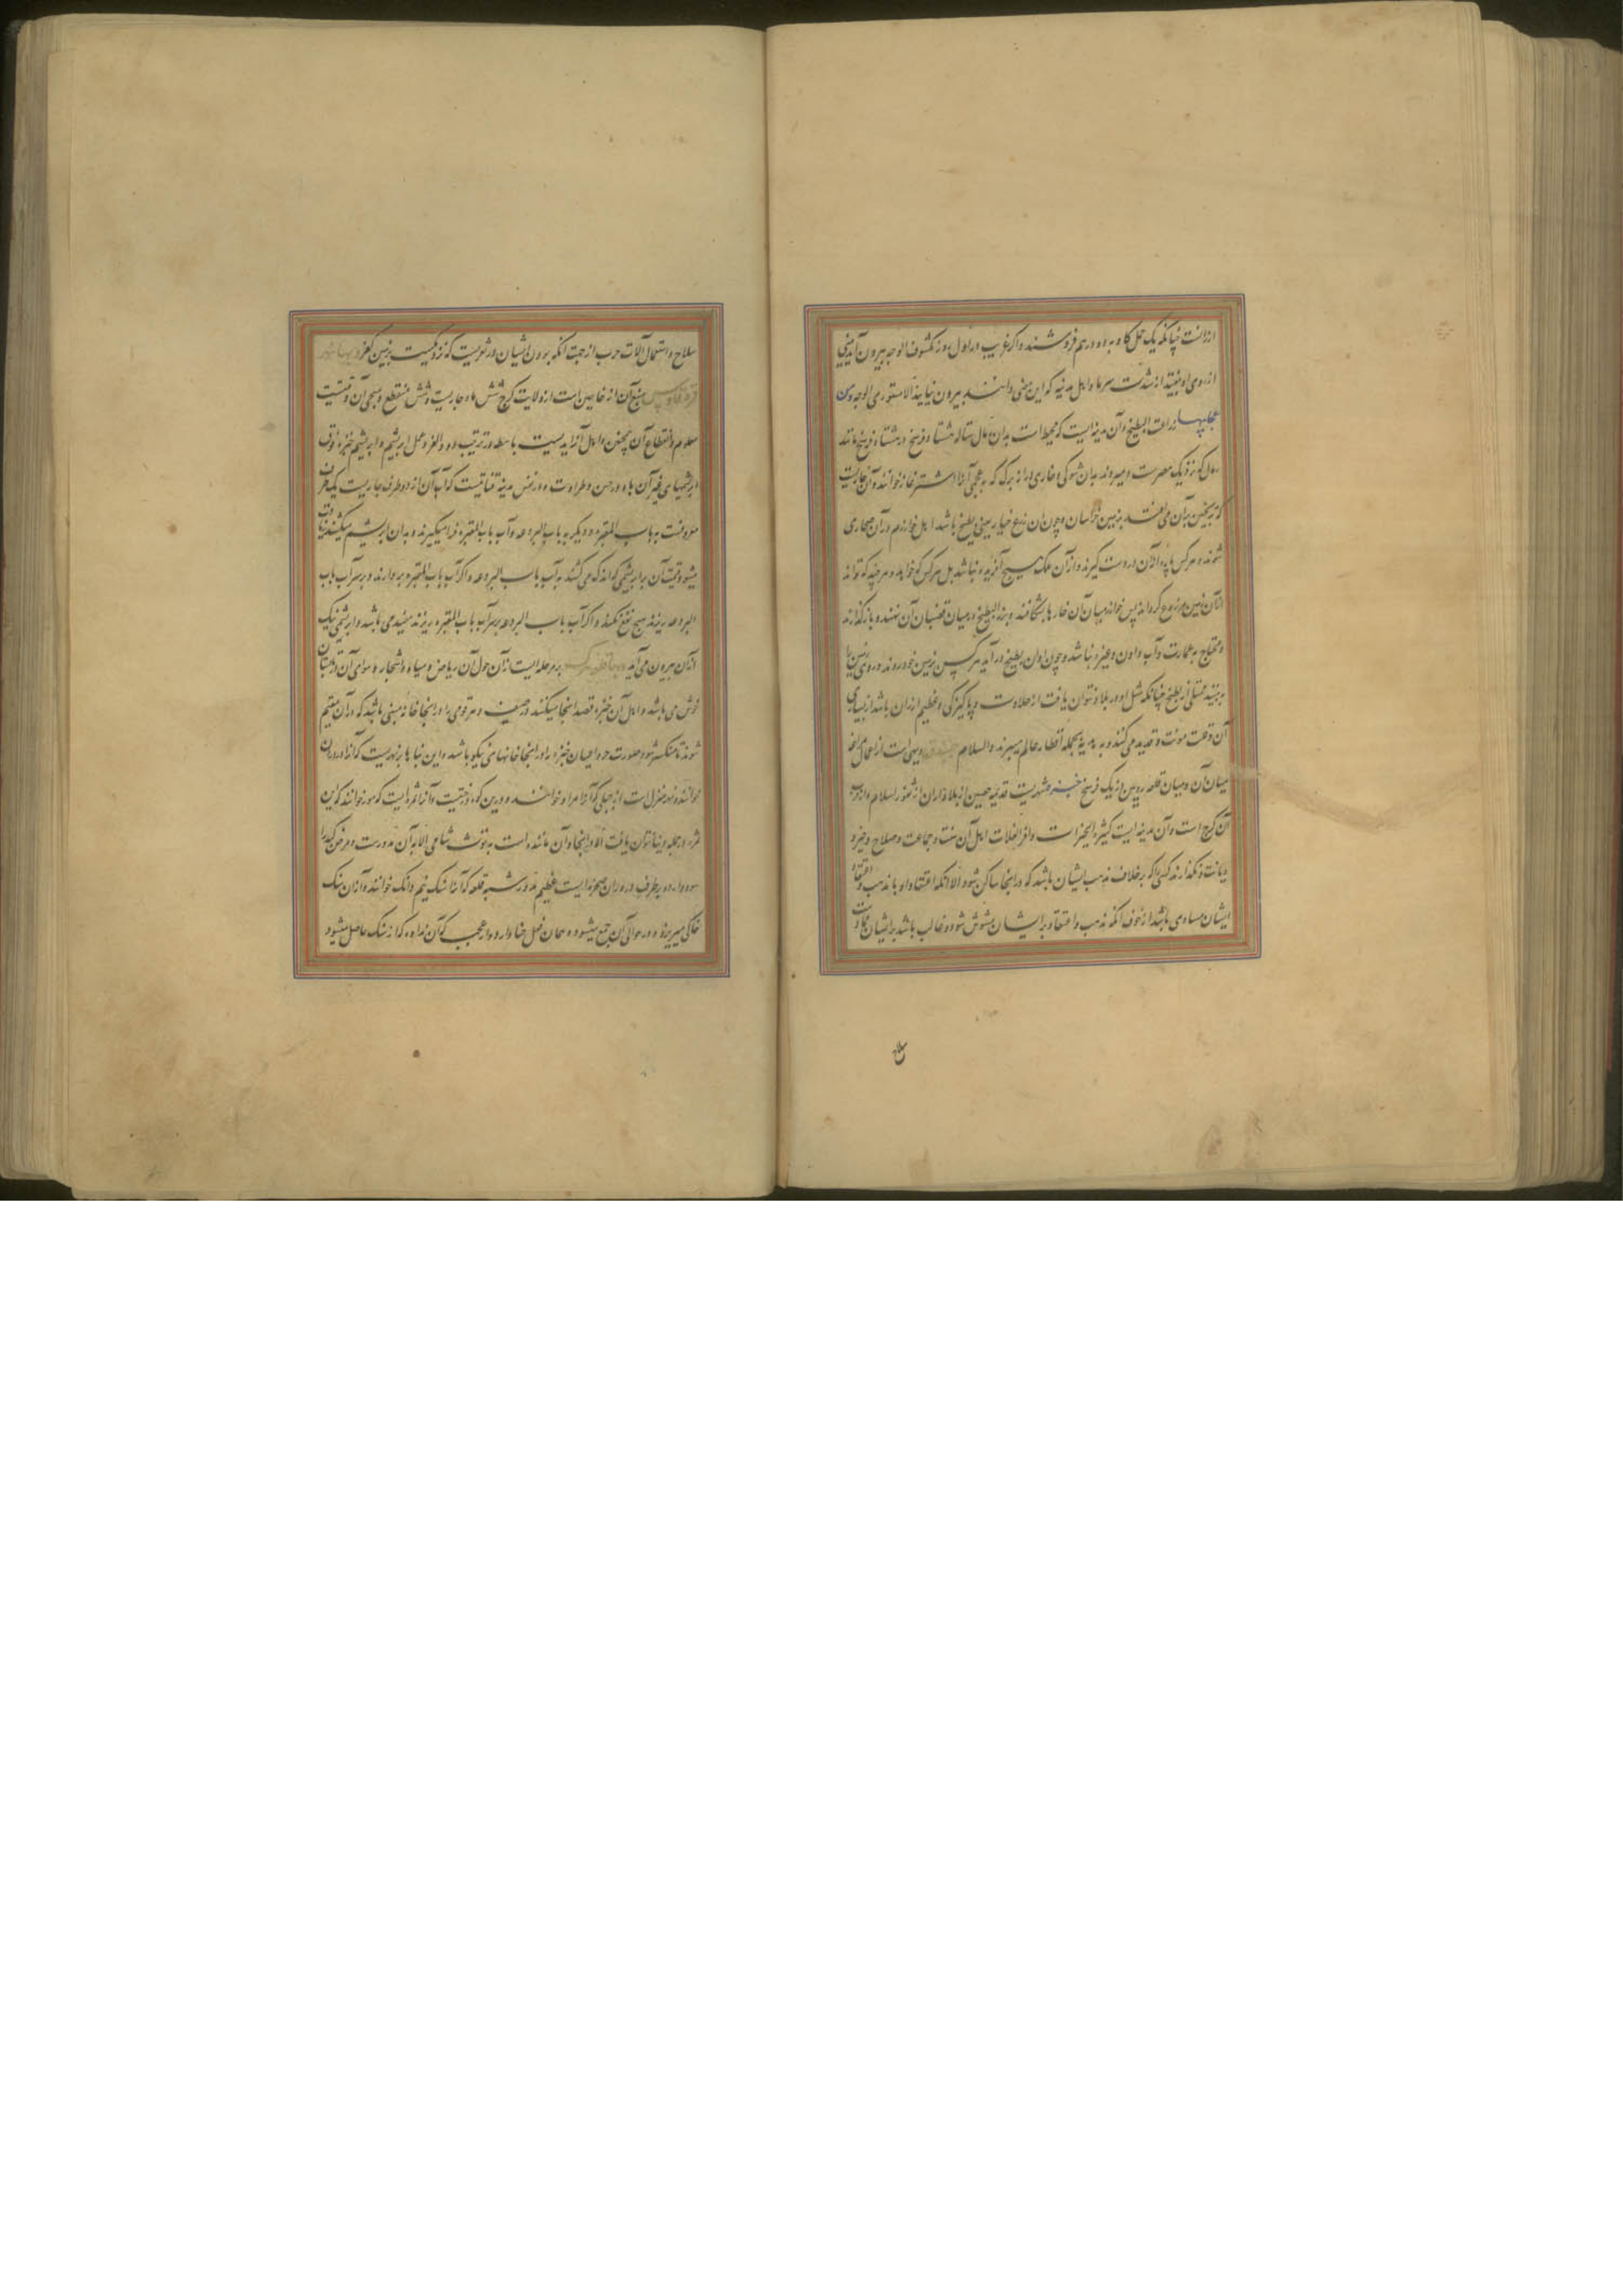 ارزانست چنانکه یک حمل کاه به دو درهم فروشند و اگر غریب در اول روز مکشوف الوجه بیرون آید بینی
از روی او بیفتد از شدت سرما و اهل مدینه که این معنی دانند بیرون نیایند الا مستوری الوجه و من
عجایبها زراعت البطیخ و آن مدینه ایست که محیط است بدان رمال مثاله هشتاد فرسخ در هشتاد فرسخ مانند
رمال که نزدیک مصرست و میروید بدان شوکی و خاری دراز برگ که به عجمی آنرا اشتر غاز خوانند و آن خاریست
که ترنجبین بر آن می افتد بزمین خراسان و چون آن زرع خیار یعنی بطیخ باشد اهل خوارزم در آن صحاری
شوند و هر کس پاره الان در دست گیرند و از آن ملک هیچ آفریده نباشد بل هر کس که خواهد و هر چند که تواند
از آن زمین مزروع گرداند پس خوازمیان آن خارها بشکافند و بزر البطیخ در میان قضبان آن نهند و باز گذارند
و محتاج به عمارت و آب دادن و غیره نباشد و چون اوان بطیخ در آید هر کس بزمین خود روند و روی زمین را
بینند ممتلی از بطیخ چنانکه مثل او در بلاد نتوان یافت از حلاوت و پاکیزگی و عظیم ارزان باشد از بسیاری
آن و قلت مونت و قدید می کنند و به هدیه بجمله اقطار عالم میبرند والسلام دیهی است از اعمال مراغه
میان آن و میان قلعه رویین دز یک فرسخ جنزه شهریست قدیمه حصین از بلاد اران از ثغور اسلام و از قرب
آن کرج است و آن مدینه ایست کثیر الخیرات وافر الغلات اهل آن سنت و جماعت و صلاح و خیر و
دیانت و نگذارند کسی را که بر خلاف مذهب ایشان باشد که در انجا ساکن شود الا انکه اعتقاد او با مذهب و اعتقاد
ایشان مساوی باشد از خوف انکه مذهب و اعتقاد بر ایشان مشوش شود و غالب باشد بر ایشان ممارست
سلاح
سلاح و استعمال آلات حرب از جهت انکه بودن ایشان در ثغریست که نزدیکست بزمین کفر و بها نهر
قردقاس منبع آن از خاچین است از ولایت کرج شش ماه جاریست و شش منقطع و مجی آن وقتیست
معلوم و انقطاع آن همچنین و اهل آنرا یدیست باسطه در تربیت دود القز و عمل ابریشم و ابریشم جنزه فوق
ابریشمهای غیر آن باد در حسن و طراوت و در نفس مدینه قناتیست که آب آن از دو طرف جاریست یک طرف
معروفست به باب المقبره و دیگر به باب البردعه و آب باب المقبره فرا میگیرند و بدان ابریشم میکشند زیادت
میشود قیمت آن بر ابریشمی که انکه می کشند به آب باب البردعه و اگر آب باب المقبره بردارند و بر سر آب باب
البردعه ریزند هیچ نفع نکند و اگر آب باب البردعه بر سر آب باب المقبره ریزند مفید می باشد و ابریشمی نیک
از آن بیرون می آید و بها قلعه هرک بر مرحله ایست از آن حول آن ریاض و میاه و اشجار و هوای آن در تابستان
خوش می باشد و اهل آن جنزه قصد انجا میکنند در صیف و هر قومی را در انجا خانه مبنی باشد که در آن مقیم
شوند تا منکسر شود صولت حر و اعیان جنزه را در انجا خانهای نیکو باشد و این بناها بر نهریست که آنرا دروران
خوانند و نهر منزل است از جبلی که آنرا مراو خوانند و درین کوه درختیست و آنرا ثمره ایست که موز خوانند که این
ثمره در جمله دنیا نتوان یافت الا در انجا و آن مانند است به توت شامی الا که آن مدورست و مرض کبد را
سود دارد و بر طرف دروران صخره ایست عظیم مدور شبه قلعه که آنرا سنگ نیم دانک خوانند و از آن سنگ
خاکی میریزد و در حوالی آن جمع میشود و همان فعل حنا دارد و از عجب که آن نداوه که از سنگ حاصل میشود